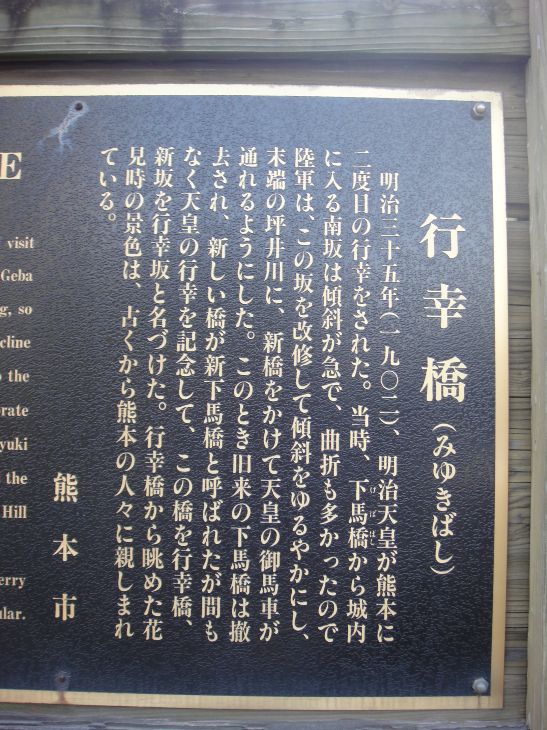 行幸橋(みゆきばし)
明治三十五年(一九〇二)、明治天皇が熊本に
二度目の行幸をされた。当時、下馬橋から城内
げばばし
に入る南坂は傾斜が急で、曲折も多かったので
陸軍は、この坂を改修して傾斜をゆるやかにし、
末端の坪井川に、新橋をかけて天皇の御馬車が
通れるようにした。このとき旧来の下馬橋は撤
去され、新しい橋が新下馬橋と呼ばれたが間も
なく天皇の行幸を記念して、この橋を行幸橋、
新坂を行幸坂と名づけた。行幸橋から眺めた花
見時の景色は、古くから熊本の人々に親しまれ
ている。
熊本市
E
visit
Geba
g, so
cline
the
orate
yuki
the
Hill
erry
ular.